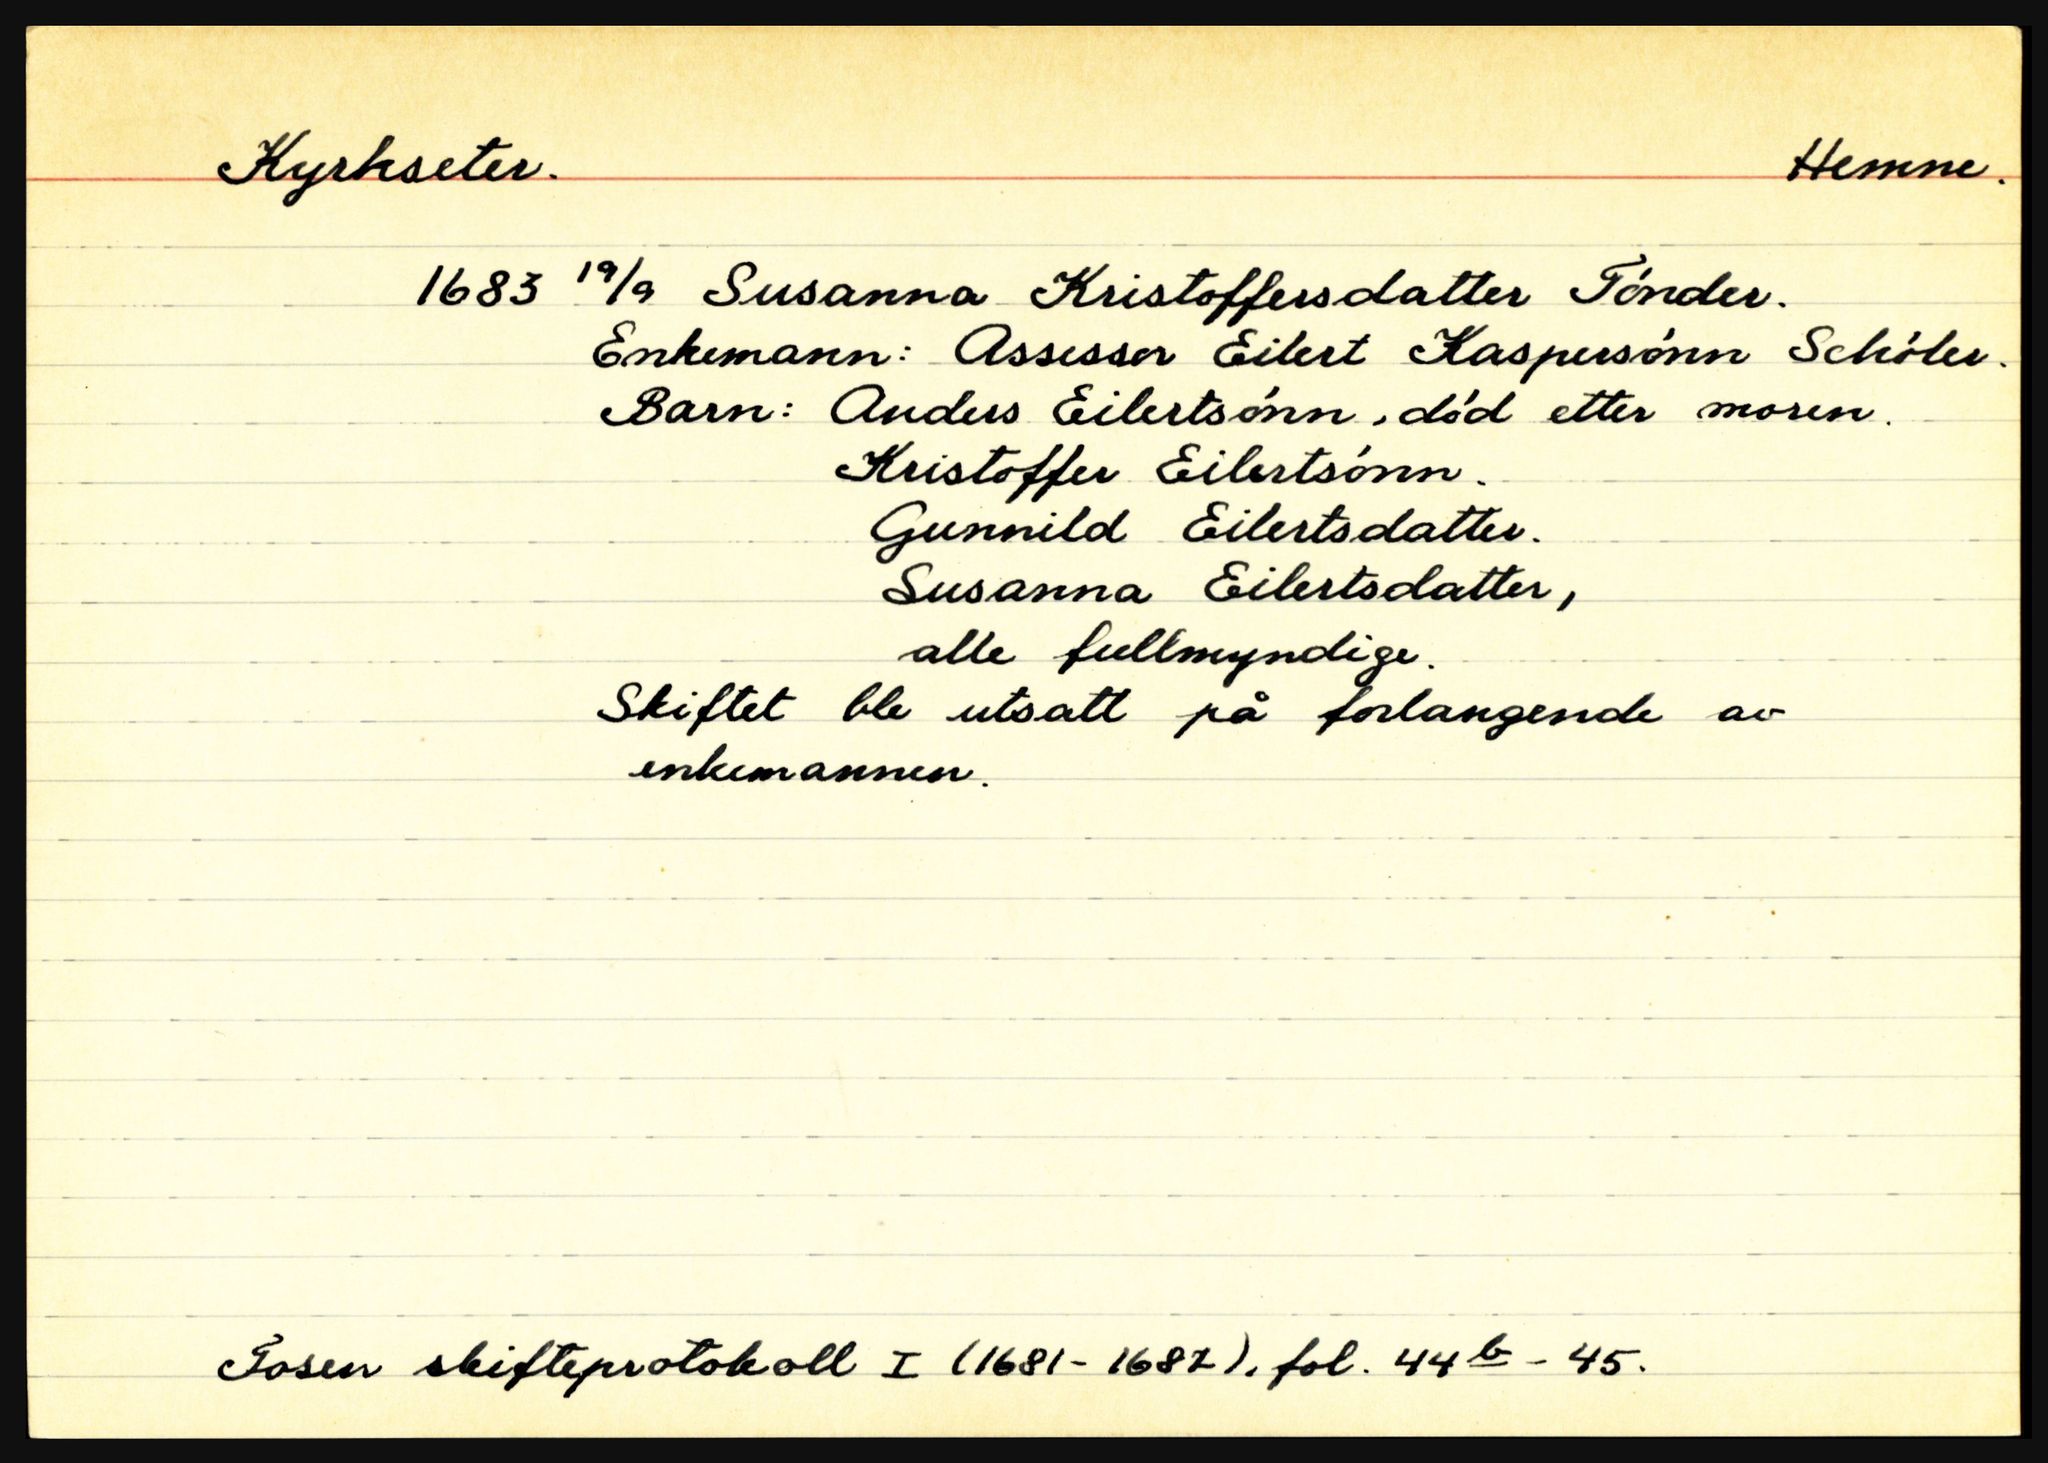 Kyrkseter. Hemne.
1683 19/9 Susanna Kristoffersdatter Tónder.
Enkemann: Assessor Eilert Kaspersónn Schóler.
Barn: Anders Eilertsónn, dód etter moren.
Kristoffer Eilertsónn.
Gunnild Eilertsdatter.
Susanna Eilertsdatter,
alle fullmyndige.
Skiftet ble utsatt på forlangende av
enkemannen.
Fosen skifteprotokoll I (1681-1687), fol. 44b-45.